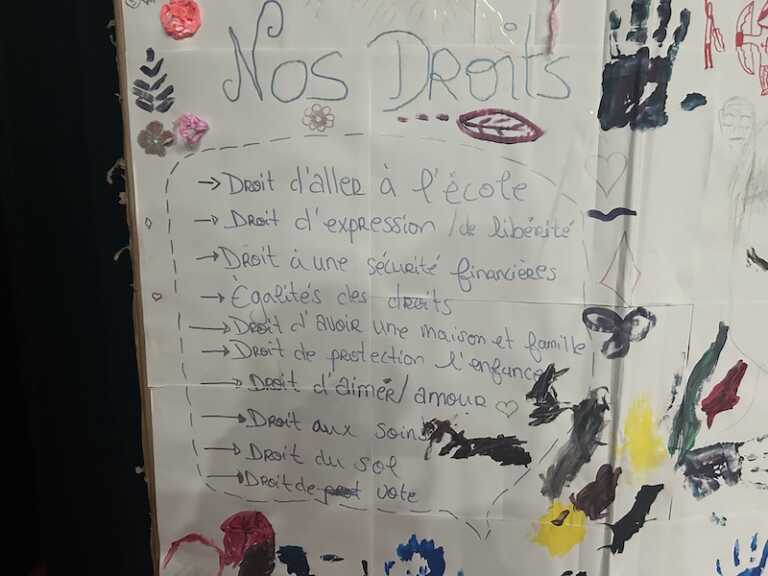 Nos Droits
→ Droit d'aller à l'école
→ Droit d'expression / de libérité
→ Droit à une sécurité financières
→ Ègalités des droits
→ Droit d'avoir une maison et famille
→ Droit de protection l'enfance
→ Droit d'aimér / amour ♡
→ Droit aux soins
→ Droit du sol
→ Droit de vote